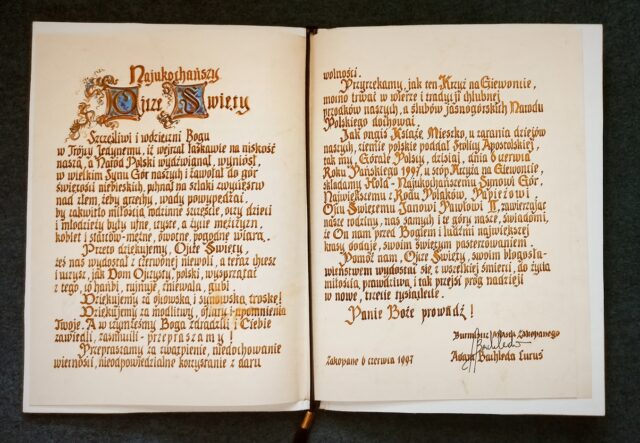 Najukochańszy
Ojcze Święty
Szczęśliwi i wdzięczni Bogu
w Trójcy Jedynemu, iż wejrzał łaskawie na niskość
naszą, a Naród Polski wydźwignął, wyniósł,
w wielkim Synu Gór naszych i zawołał do gór
świętości niebieskich, pchnął na szlaki zwycięstw
nad złem, żeby grzechy, wady powypędzał,
by zakwitło miłością rodzinne szczęście, by dzieci
i młodzież były ufne, czyste, a życie mężczyzn,
kobiet i starców - mężne, owocne, pogodne wiarą.
Przeto dziękujemy, Ojcze Święty,
żeś nas wydostał z czerwonej niewoli, a teraz chcesz
i uczysz, jak Dom Ojczysty, polski, wysprzątać
z tego, co hańbi, rujnuje, zniewala, gubi.
Dziękujemy za ojcowską i synowską troskę!
Dziękujemy za modlitwy, ofiary i upomnienia
Twoje. A w czymżeśmy Boga zdradzili i Ciebie
zawiedli, zasmucili - przepraszamy!
Przepraszamy za zwątpienie, niedochowanie
wierności, nieodpowiedzialne korzystanie z daru
wolności.
Przyrzekamy, jak ten Krzyż na Giewoncie,
mocno trwać w wierze i tradycji chlubnej
przodków naszych, a ślubów jasnogórskich Narodu
Polskiego dochować.
Jak ongiś Książę Mieszko, u zarania dziejów
naszych, ziemie polskie poddał Stolicy Apostolskiej,
tak my, Górale Polscy, dzisiaj, dnia 6 czerwca
Roku Pańskiego 1997, u stóp Krzyża na Giewoncie,
składamy Hołd - Najukochańszemu Synowi Gór,
Największemu z Rodu Polaków, Papieżowi,
Ojcu Świętemu Janowi Pawłowi II, zawierzając
nasze rodziny, nas samych i te góry nasze, świadomi,
że On nam przed Bogiem i ludźmi największej
krasy dodaje, swoim świętym pasterzowaniem.
Pomóż nam, Ojcze Święty, swoim błogosła-
wieństwem wydostać się z wszelkiej śmierci, do życia
miłością, prawdziwą i tak przejść próg nadziei
w nowe, trzecie tysiąclecie.
Panie Boże prowadź!
Burmistrz Miasta Zakopanego
Zakopane 6 czerwca 1997
Adam Bachleda Curuś